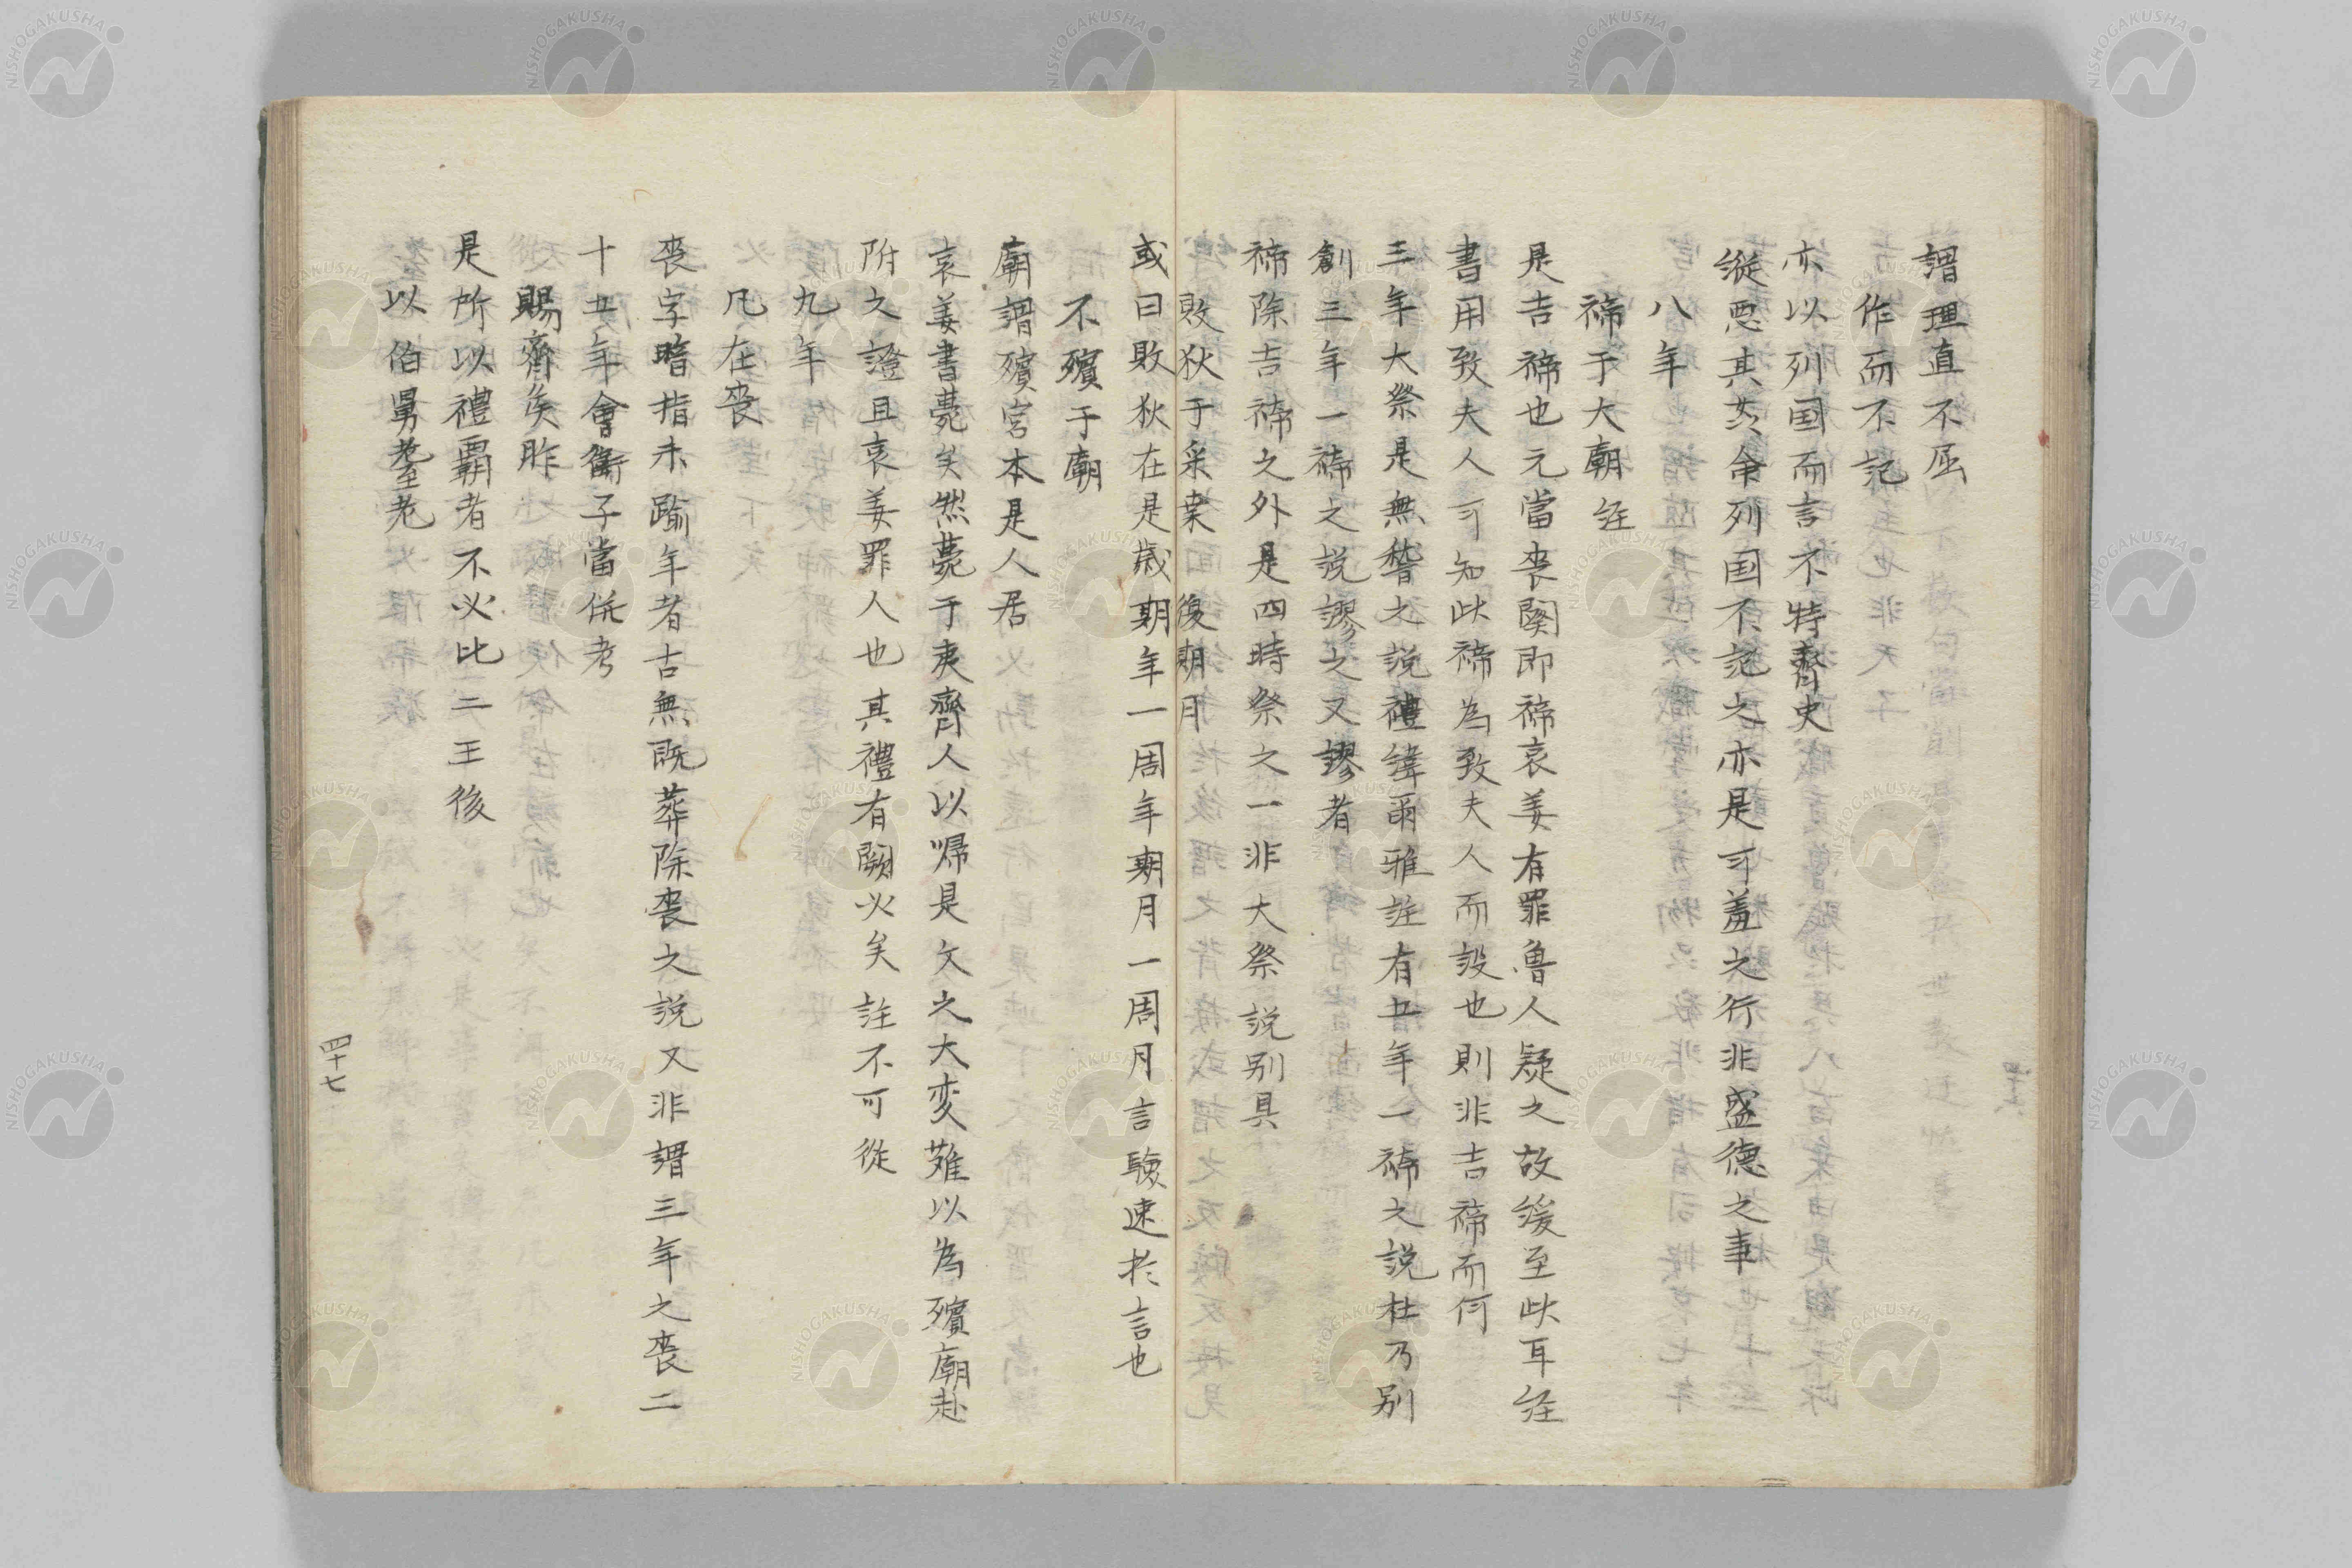 謂理直不屈
作而不記
亦以列国而言不特齊史
縱惡其淫命列国不記之亦是可蓋之行非盛德之事
八年
禘于大廟経
是吉禘也元當喪闋即禘哀姜有罪魯人疑之故緩至此耳経
書用致夫人可知此禘為致夫人而設也則非吉禘而何
三年大祭是無稽之説禮緯爾雅註有五年一禘之説杜乃別
創三年一禘之説謬之又謬者
禘除吉禘之外是四時祭之一非大祭説別具
敗狄于采桒　復期月
或曰敗狄在是歳期年一周年期月一周月言驗速於言也
不殯于廟
廟謂殯宮本是人居
哀姜書薨矣然薨于夷齊人以帰是文之大変難以為殯廟赴
附之證且哀姜罪人也其禮有闕必矣註不可従
九年
凡在喪
喪字暗指未踰年者古無既葬除喪之説又非謂三年之喪二
十五年會衞子當併考
賜齊侯胙
是所以禮覇者不必比二王後
以伯舅耋老
四十七